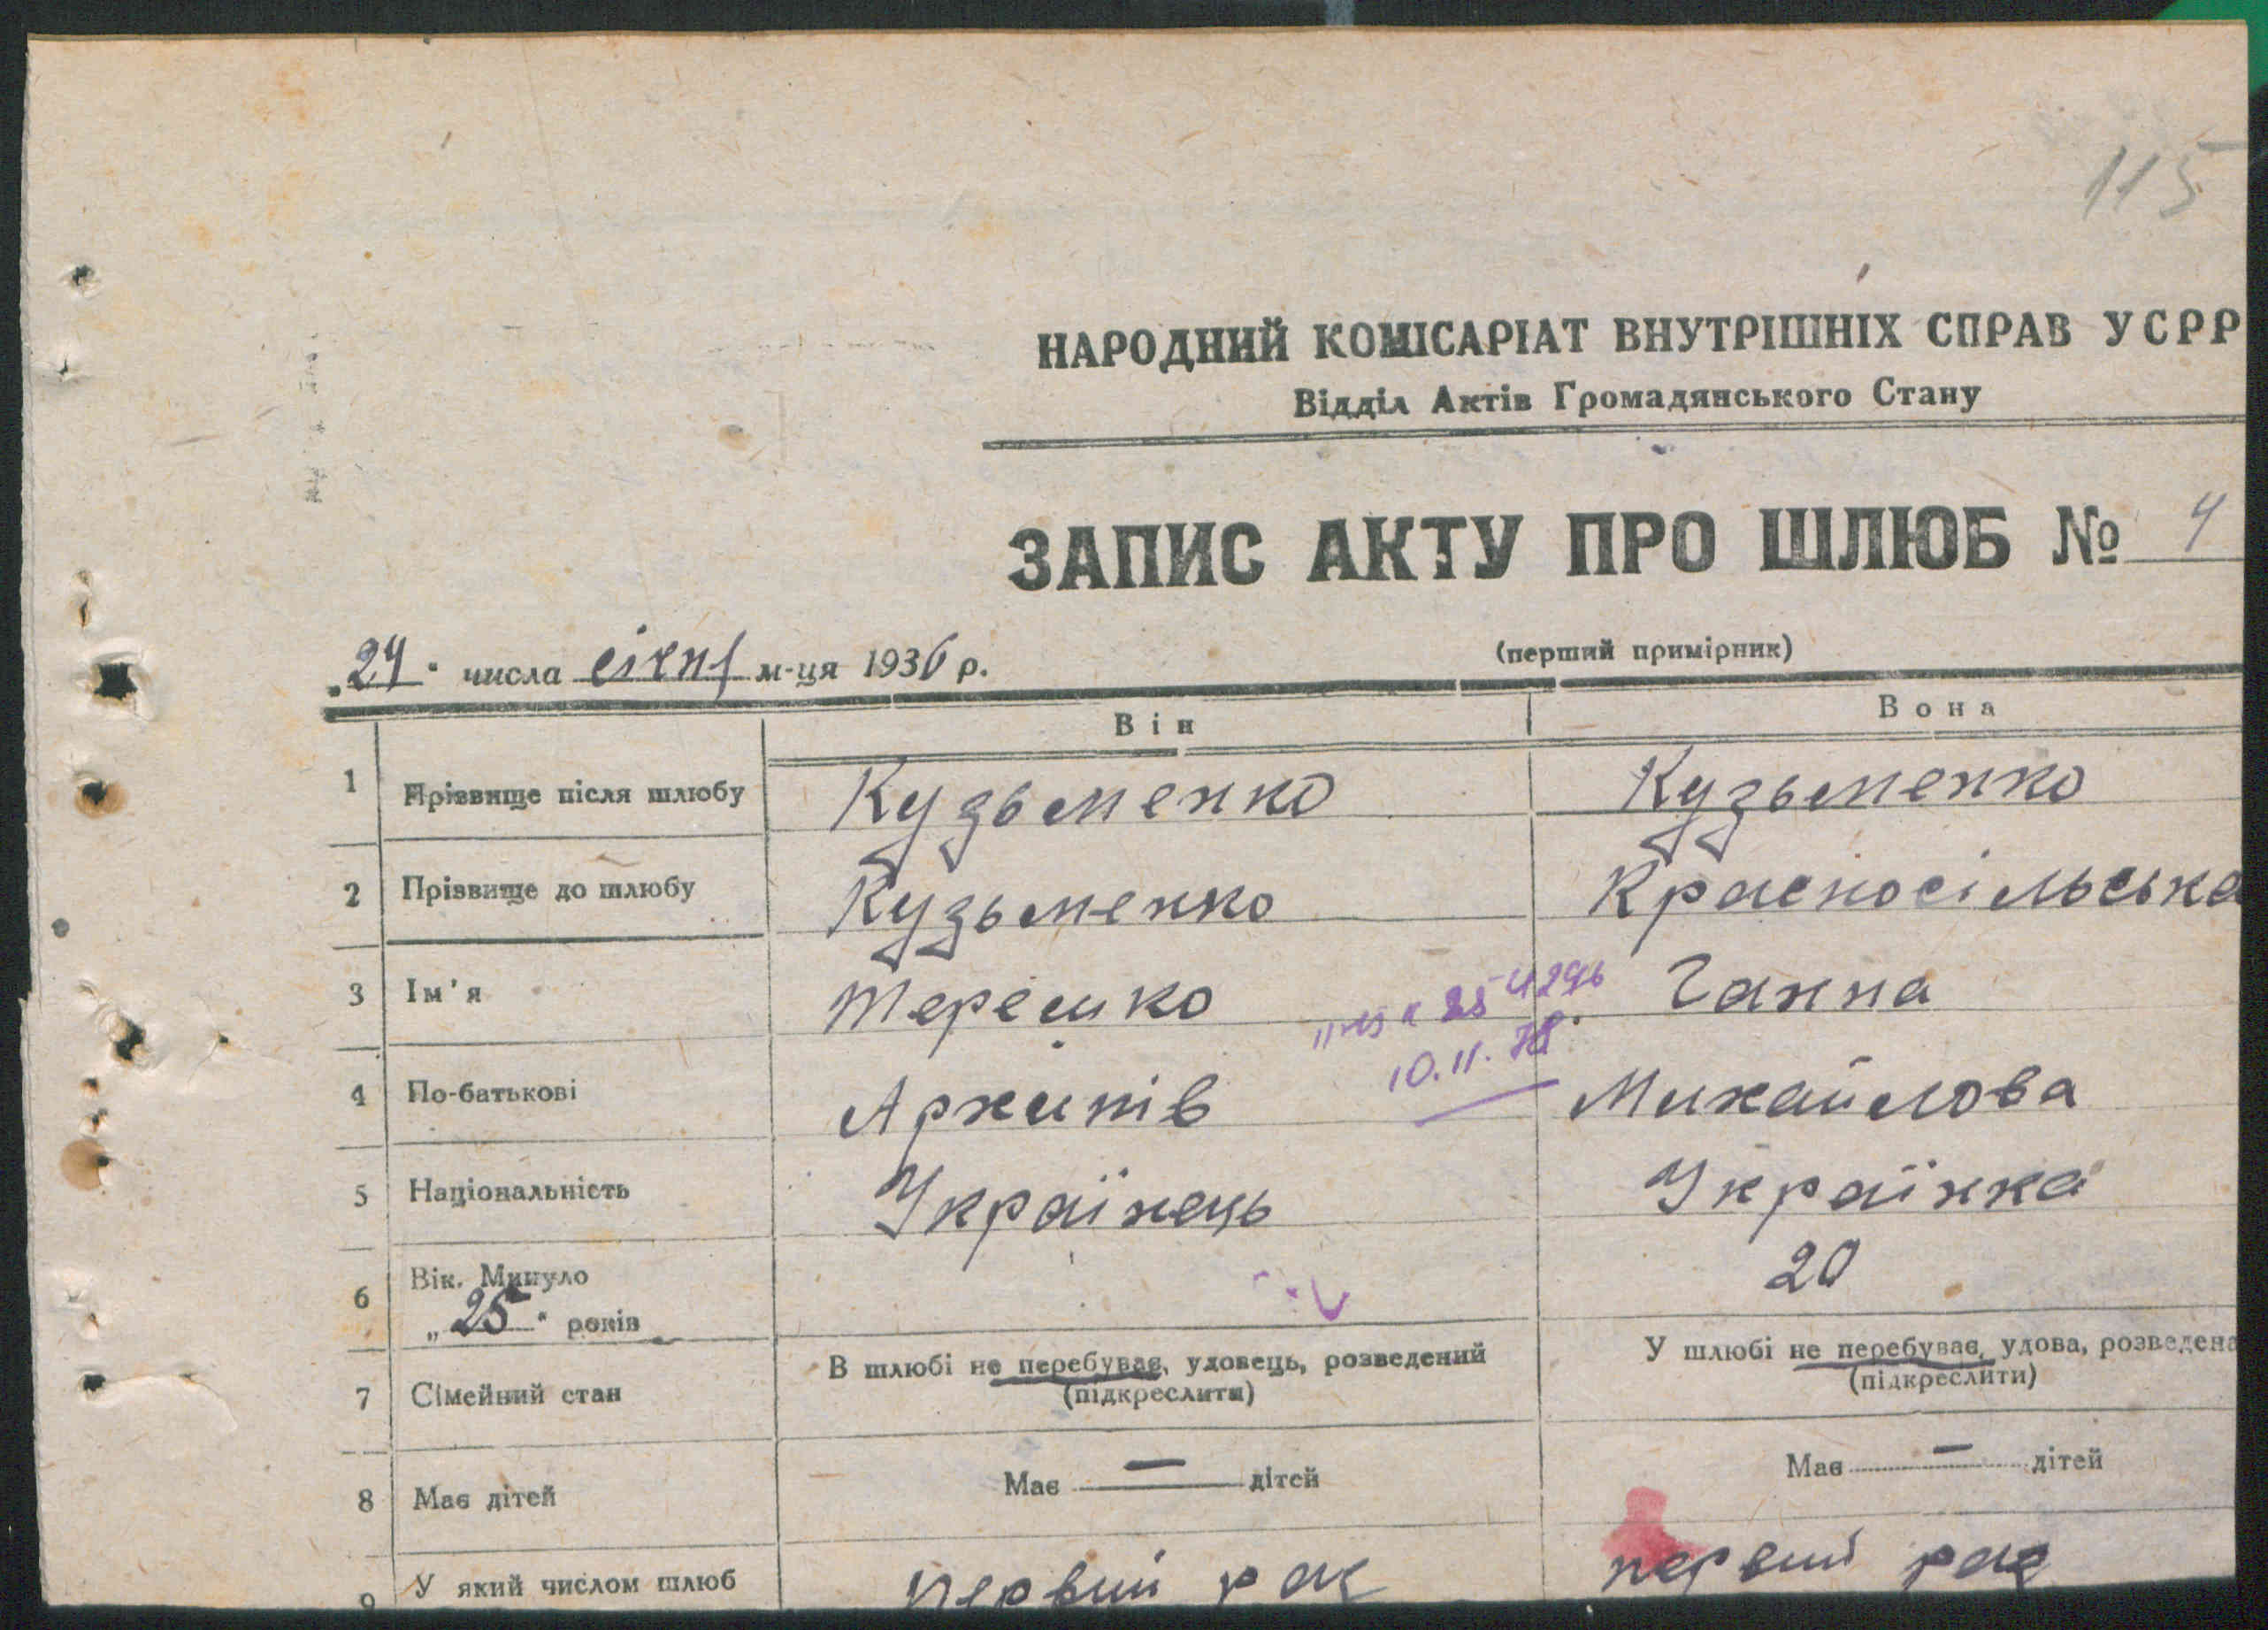 115
НАРОДНИЙ КОМІСАРІАТ ВНУТРІШНІХ СПРАВ УСРР
Відділ Актів Громадянського Стану
ЗАПИС АКТУ ПРО ШЛЮБ № 4
(перший примірник)
„24“ числа січня м-ця 1936 р.
Він Вона
1 Прізвище після шлюбу Кузьменко Кузьменко
2 Прізвище до шлюбу Кузьменко Красносільська
3 Ім'я Терешко Ганна
10.11.78
4 По-батькові Архипів Михайлова
5 Національність Українець Українка
6 Вік. Минуло 20
„25“ років
7 Сімейний стан В шлюбі не перебуває, удовець, розведений У шлюбі не перебуває, удова, розведена
(підкреслити) (підкреслити)
8 Має дітей Має — дітей Має — дітей
9 У який числом шлюб первий раз первий раз